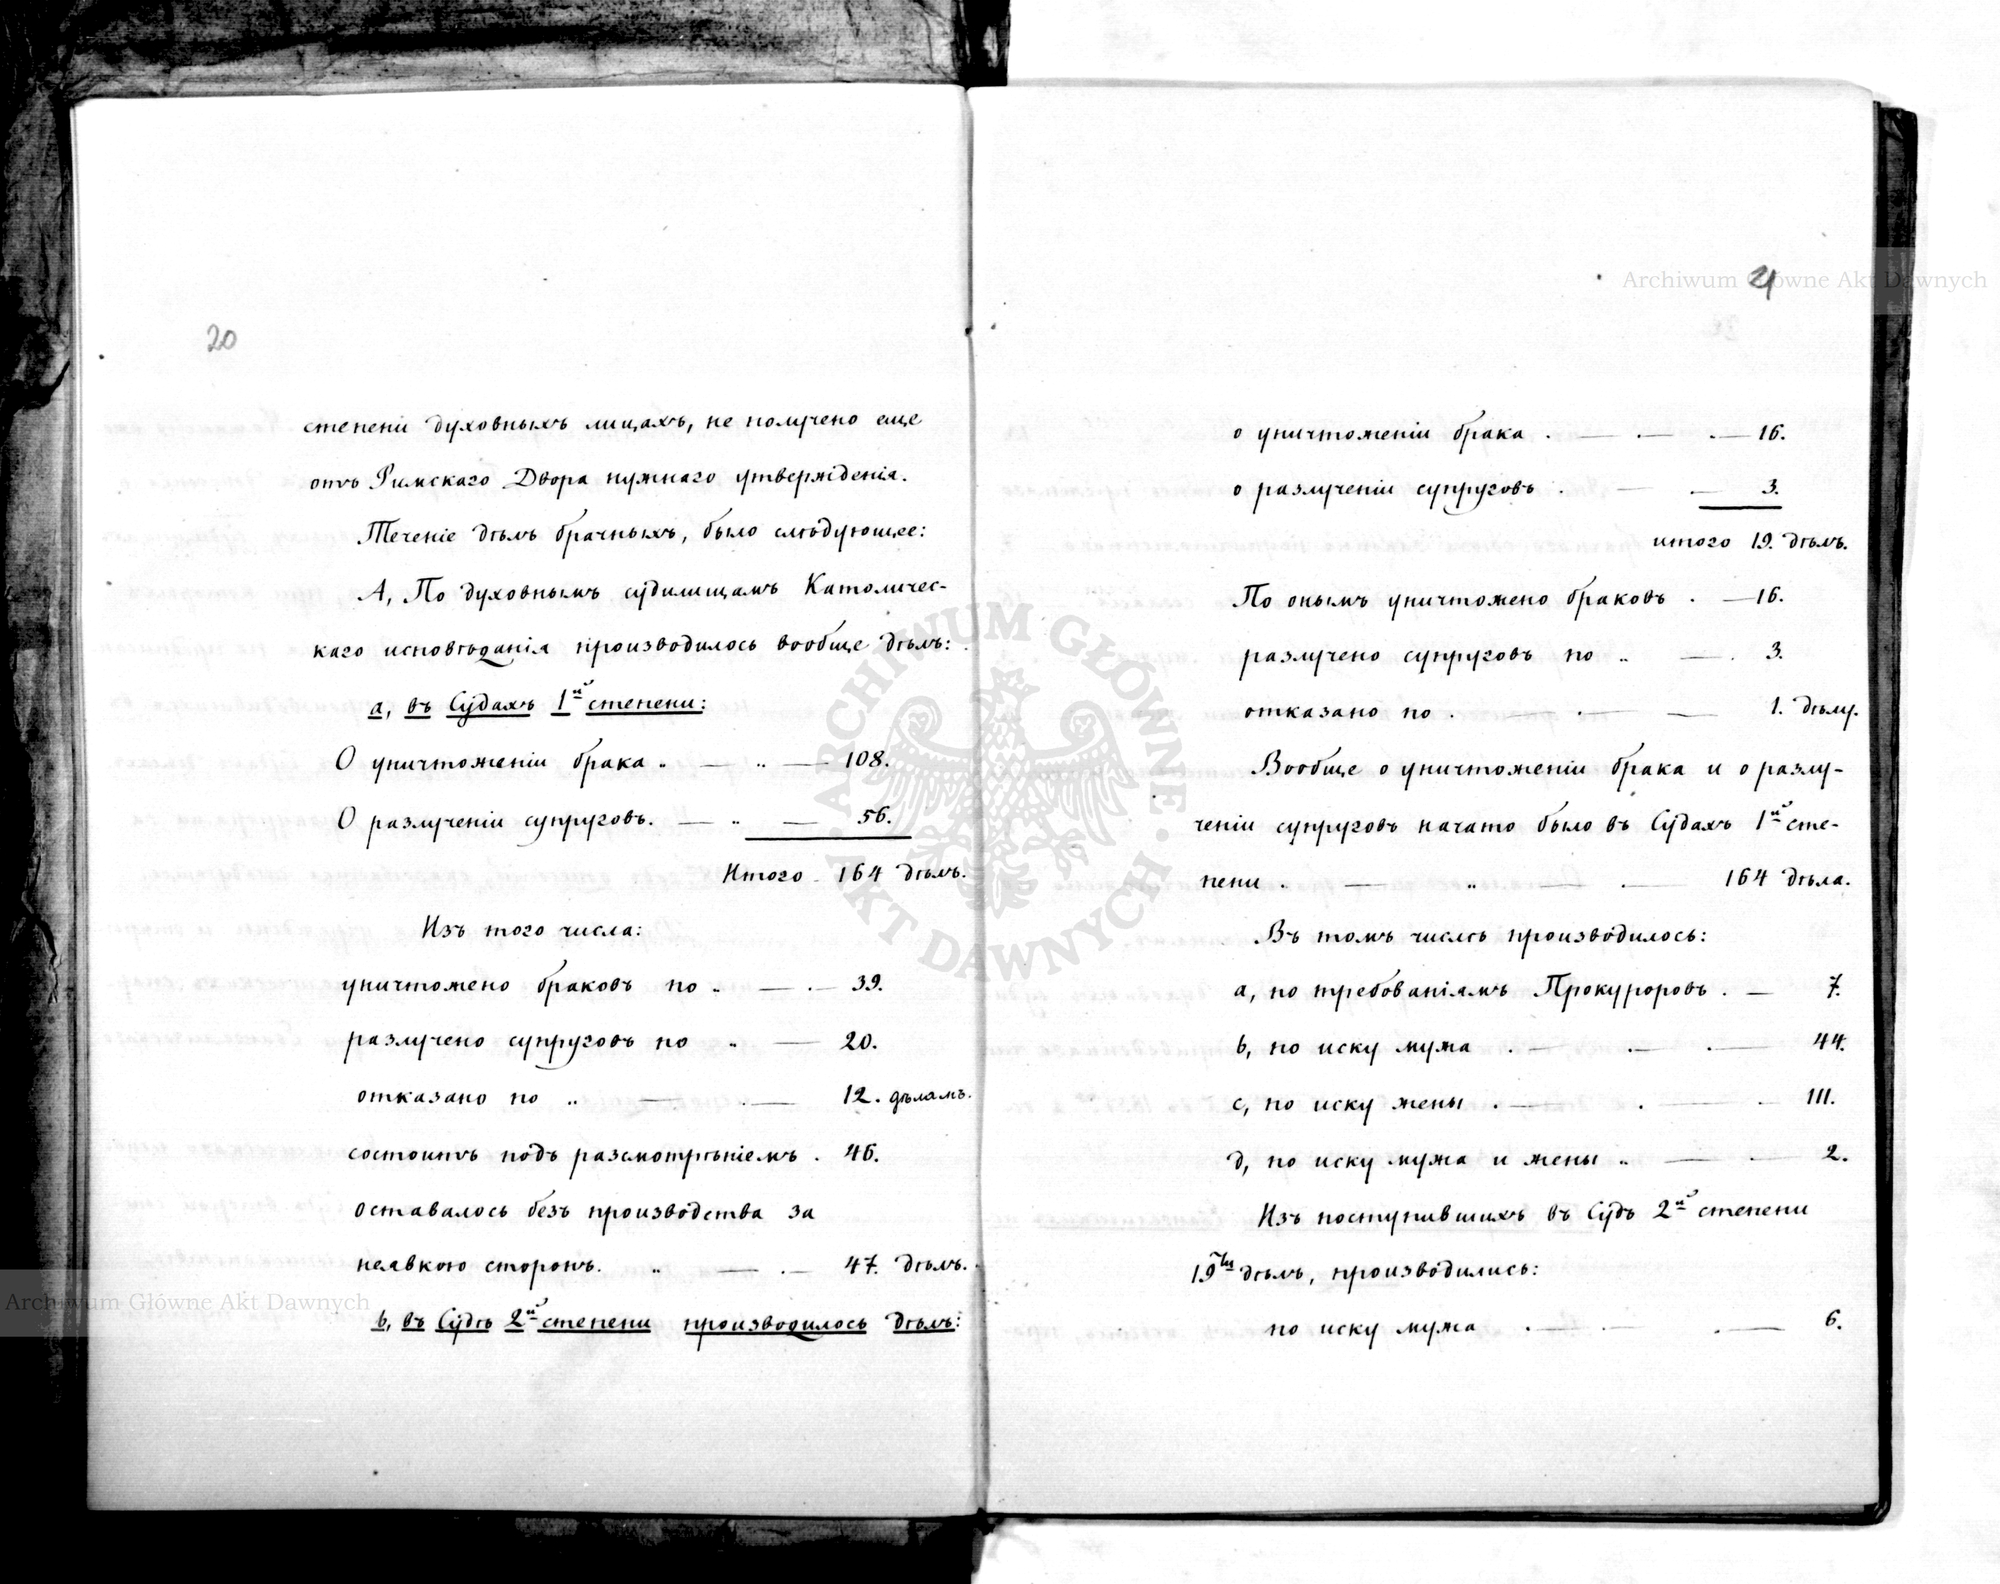 20
степени духовныхъ лицахъ, не получено еще
отъ Римскаго Двора нужнаго утвержденія.
Теченіе дѣлъ брачныхъ, было слѣдующее:
А, По духовнымъ судилищамъ Католичес-
каго исповѣданія производилось вообще дѣлъ:
а, въ Судахъ 1й степени:
О уничтоженіи брака „ — „ — 108.
О разлученіи супруговъ. — „ — 56.
Итого 164 дѣлъ.
Изъ того числа:
уничтожено браковъ по „ — . — 39.
разлучено супруговъ по „ — 20.
отказано по „ — „ — 12. дѣламъ.
состоитъ подъ разсмотрѣніемъ . 46.
оставалось безъ производства за
неявкою сторонъ. „ — . — 47. дѣлъ.
b, въ Судѣ 2й степени производилось дѣлъ:
21
о уничтоженіи брака . — . — . — 16.
о разлученіи супруговъ . — — 3.
итого 19. дѣлъ.
По онымъ уничтожено браковъ . — 16.
разлучено супруговъ по „ — . 3.
отказано по . — . — — 1. дѣлу.
Вообще о уничтоженіи брака и о разлу-
ченіи супруговъ начато было въ Судахъ 1й сте-
пени . — „ — . — 164 дѣла.
Въ томъ числѣ производилось:
а, по требованіямъ Прокуроровъ . — 7.
b, по иску мужа . — . — . — 44.
с, по иску жены . — . — . — 111.
д, по иску мужа и жены „ — . — 2.
Изъ поступившихъ въ Судъ 2й степени
19ти дѣлъ, производились:
по иску мужа . — . — . — 6.
Archiwum Główne Akt Dawnych
Archiwum Główne Akt Dawnych
ARCHIWUM GŁÓWNE · AKT DAWNYCH ·